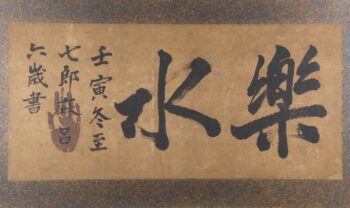 樂水
壬寅冬至
七郎麻呂
六歲書